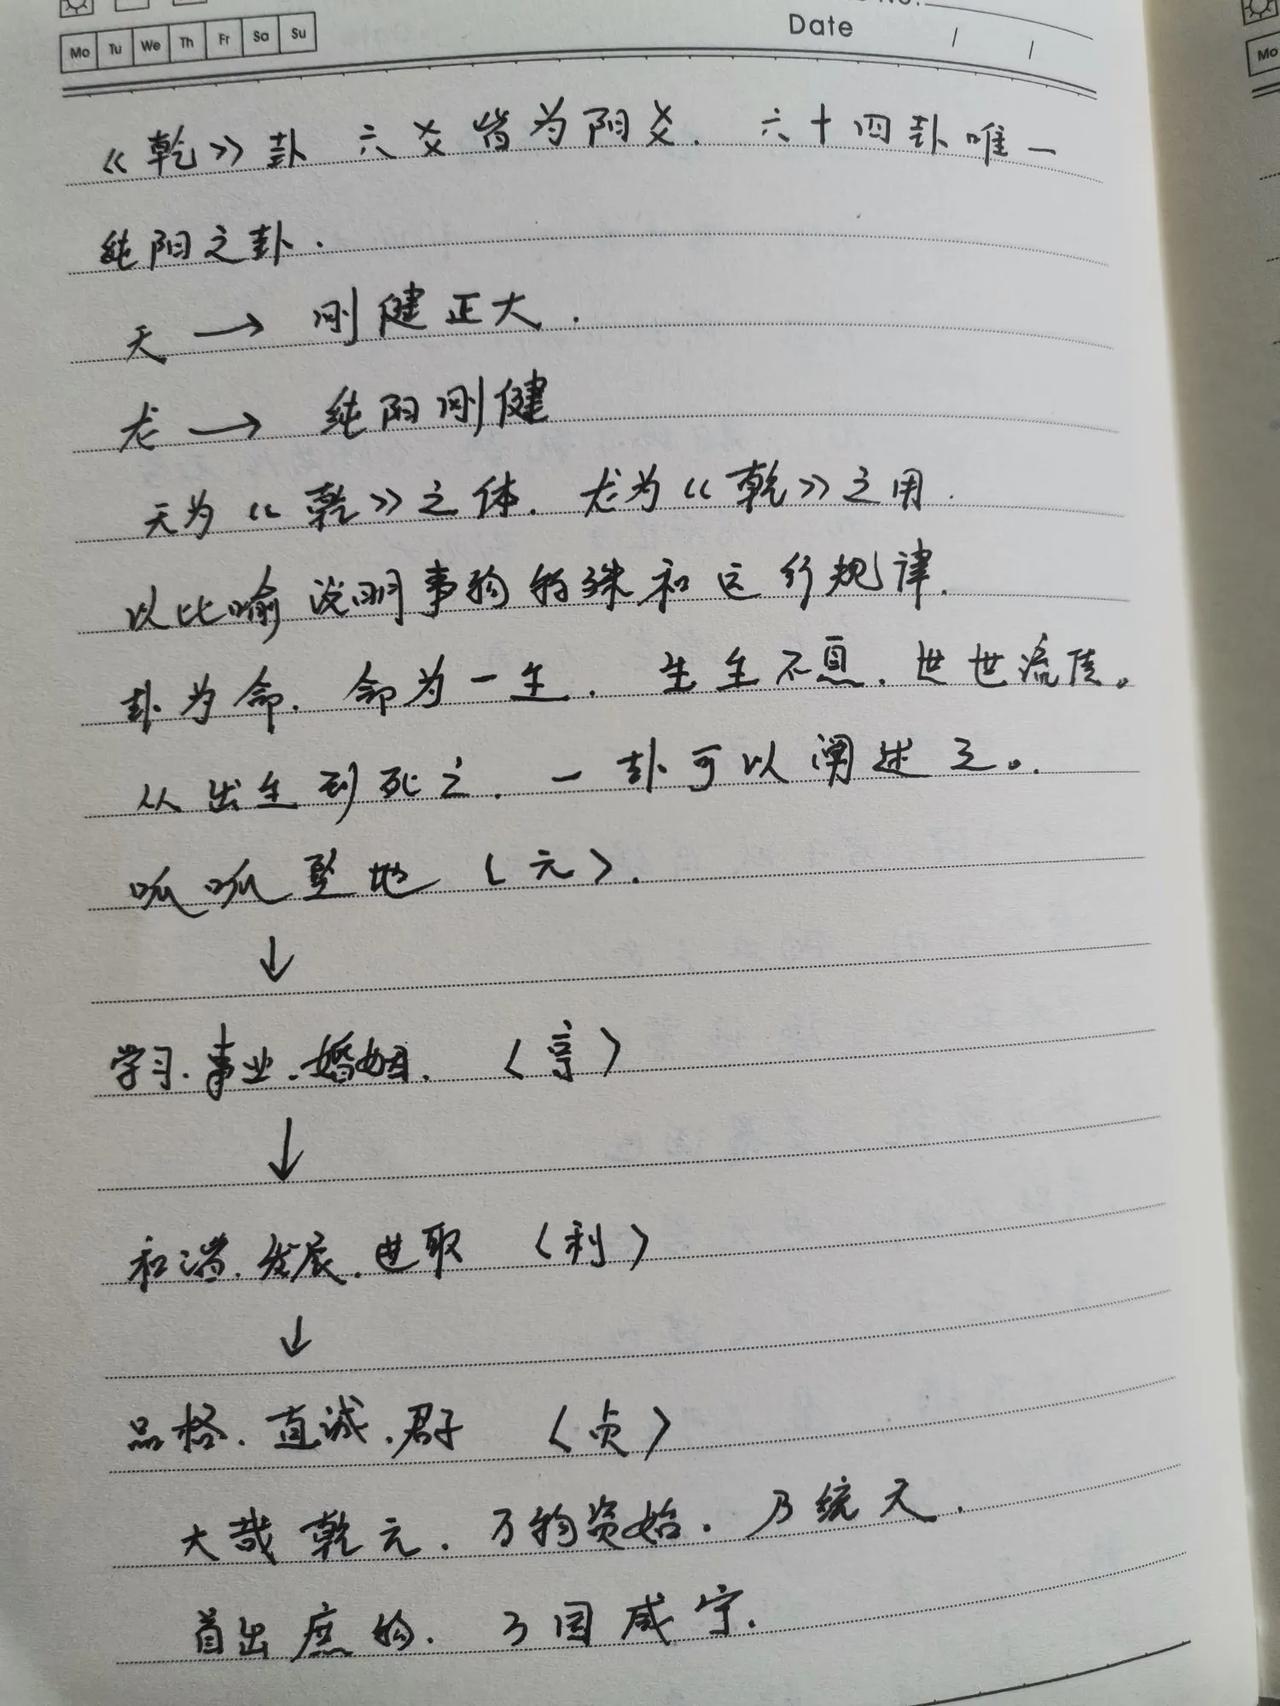 No.
Date / /
Mo Tu We Th Fr Sa Su
《乾》卦 六爻皆为阳爻. 六十四卦唯一
纯阳之卦.
天 → 刚健正大.
龙 → 纯阳刚健
天为《乾》之体. 龙为《乾》之用.
以比喻说明事物特殊和运行规律.
卦为命. 命为一生. 生生不息. 世世流传。
从出生到死亡. 一卦可以阐述之。.
呱呱坠地 (元).
↓
学习.事业.婚姻. (亨)
↓
和谐.发展.进取 (利)
↓
品格.直诚.君子 (贞)
大哉乾元. 万物资始. 乃统天.
首出庶物. 万国咸宁.
Mo